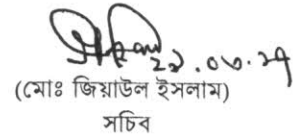 ২৯.০৩.২৭
(মোঃ জিয়াউল ইসলাম)
সচিব